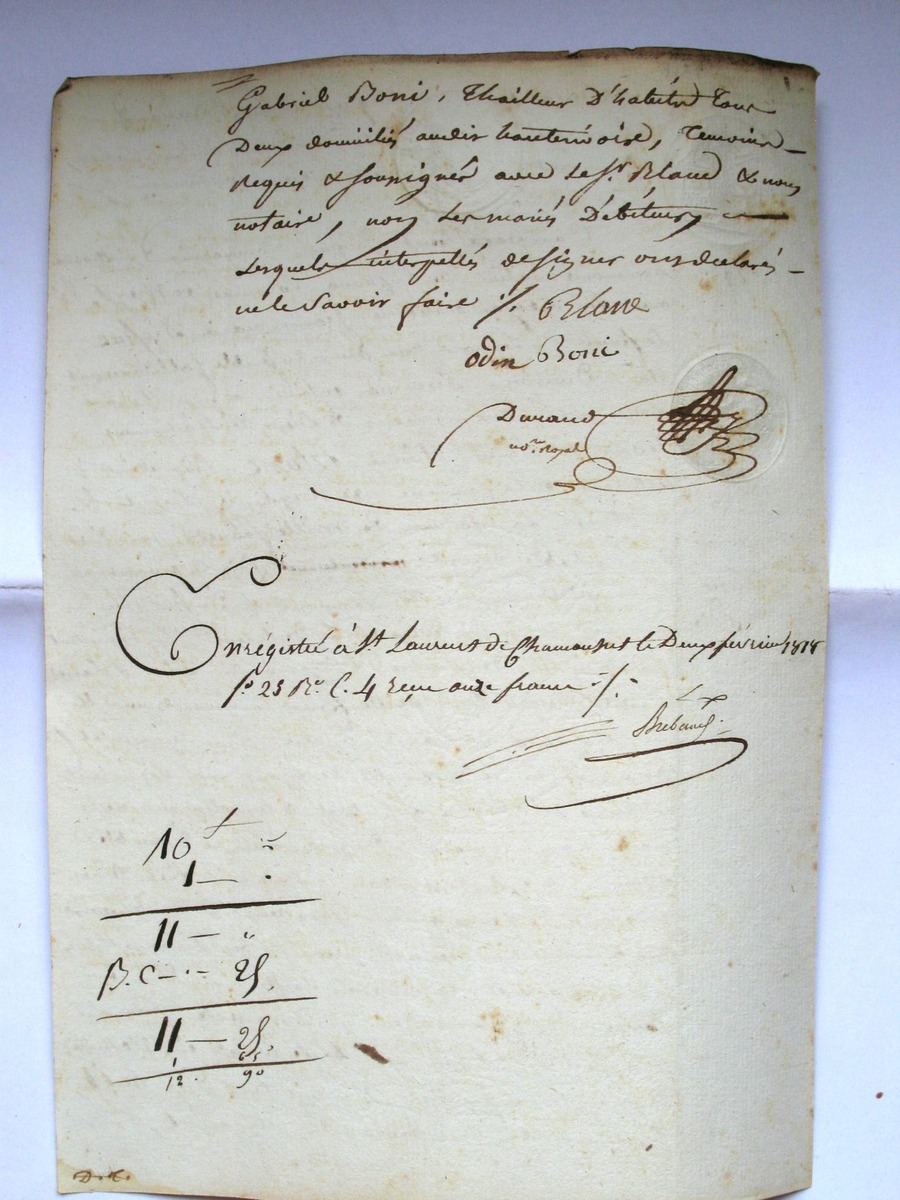 Gabriel Boni, Thailleur D'habits Tous
Deux domiciliés audit hauterivoire, Temoins
Requis & soussignés avec Le Sr. Blanc & nous
notaire, non Les mariés Débiteurs
Lesquels interpellés de signer ont declarés
ne le Savoir faire ./. Blanc
odin Boni
Durand
nore. Royal
Enrégistré à St Laurent de Chamousset le Deux février 1818
fo. 25 Ro. C. 4 reçu onze francs ./.
10 "
1 — "
11 — "
B. C — . — 25.
11 — 25.
1 65
12. 90
D. T.